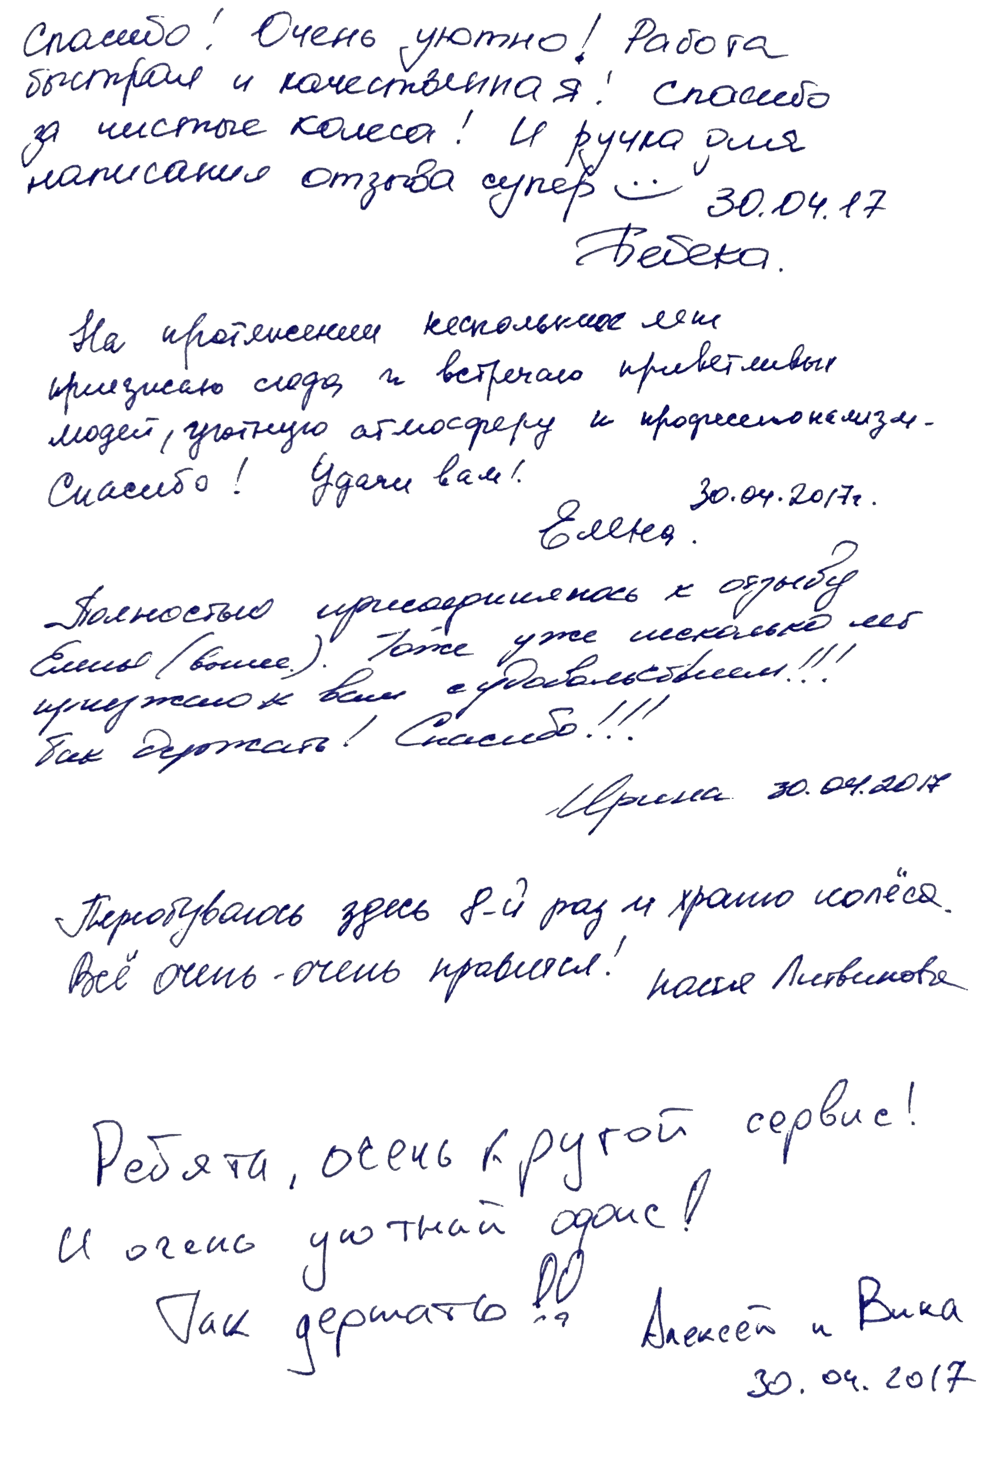 Спасибо! Очень уютно! Работа
быстрая и качественная! Спасибо
за чистые колеса! И ручка для
написания отзыва супер 30.04.17
Бебека.
На протяжении нескольких лет
приезжаю сюда и встречаю приветливых
людей, уютную атмосферу и профессионализм.
Спасибо! Удачи вам!
30.04.2017г.
Елена.
Полностью присоединяюсь к отзыву
Елены (выше). Тоже уже несколько лет
приезжаю к вам с удовольствием!!!
Так держать! Спасибо!!!
Ирина 30.04.2017
Переобуваюсь здесь 8-й раз и храню колёса.
Всё очень-очень нравится! Настя Литвинова
Ребята, очень крутой сервис!
И очень уютный офис!
Так держать!!
Алексей и Вика
30.04.2017